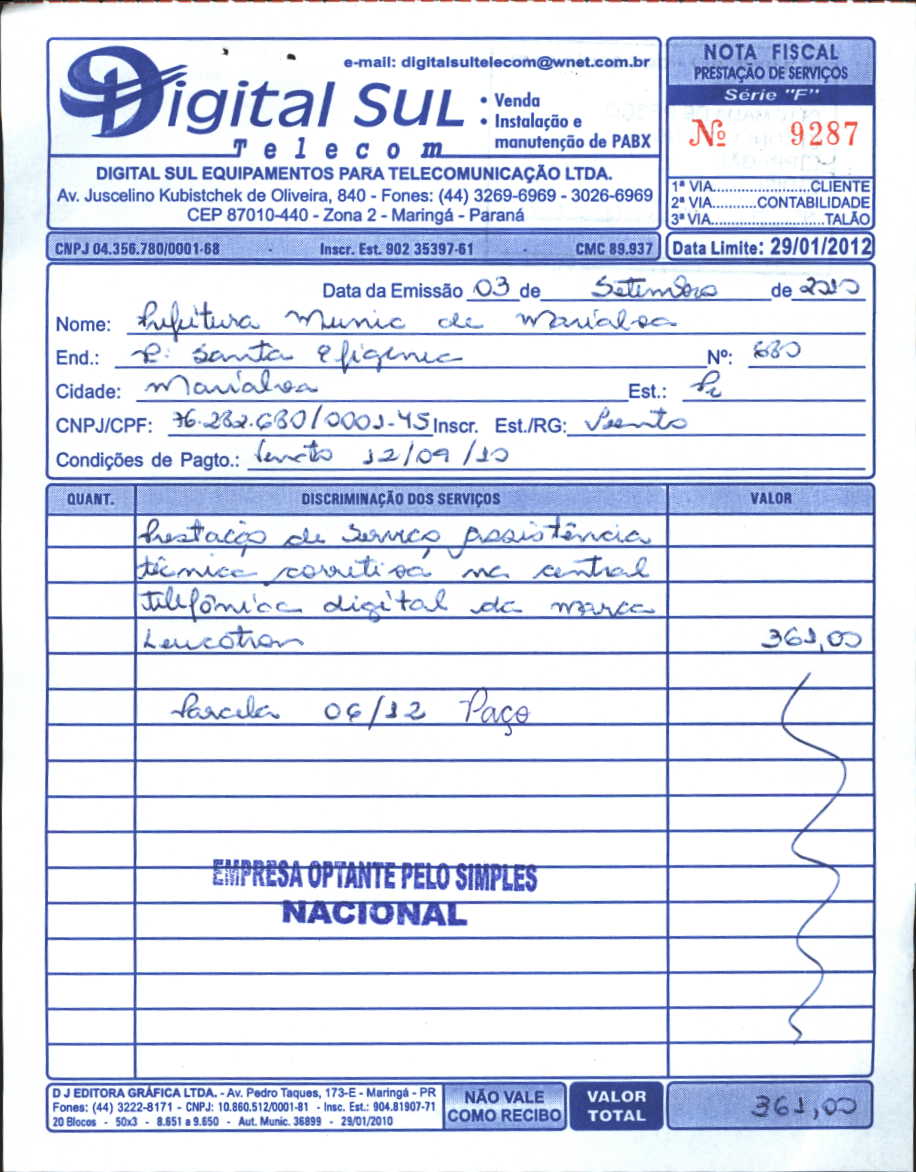 e-mail: digitalsultelecom@wnet.com.br
Digital SUL
Telecom
• Venda
• Instalação e
manutenção de PABX
DIGITAL SUL EQUIPAMENTOS PARA TELECOMUNICAÇÃO LTDA.
Av. Juscelino Kubistchek de Oliveira, 840 - Fones: (44) 3269-6969 - 3026-6969
CEP 87010-440 - Zona 2 - Maringá - Paraná
NOTA FISCAL
PRESTAÇÃO DE SERVIÇOS
Série "F"
Nº 9287
1ª VIA......................CLIENTE
2ª VIA..........CONTABILIDADE
3ª VIA.........................TALÃO
CNPJ 04.356.780/0001-68 - Inscr. Est. 902 35397-61 - CMC 89.937
Data Limite: 29/01/2012
Data da Emissão 03 de Setembro de 2010
Nome: Prefeitura Munic de Marialva
End.: R: Santa Efigenia Nº: 680
Cidade: Marialva Est.: Pr
CNPJ/CPF: 76.282.680/0001-45 Inscr. Est./RG: Isento
Condições de Pagto.: Vencto 12/09/10
QUANT. DISCRIMINAÇÃO DOS SERVIÇOS VALOR
Prestação de serviço assistência
técnica corretiva na central
telefônica digital da marca
Leucotron 361,00
Parcela 06/12 Paço
EMPRESA OPTANTE PELO SIMPLES
NACIONAL
D J EDITORA GRÁFICA LTDA. - Av. Pedro Taques, 173-E - Maringá - PR
Fones: (44) 3222-8171 - CNPJ: 10.860.512/0001-81 - Insc. Est.: 904.81907-71
20 Blocos - 50x3 - 8.651 a 9.650 - Aut. Munic. 36899 - 29/01/2010
NÃO VALE
COMO RECIBO
VALOR
TOTAL
361,00